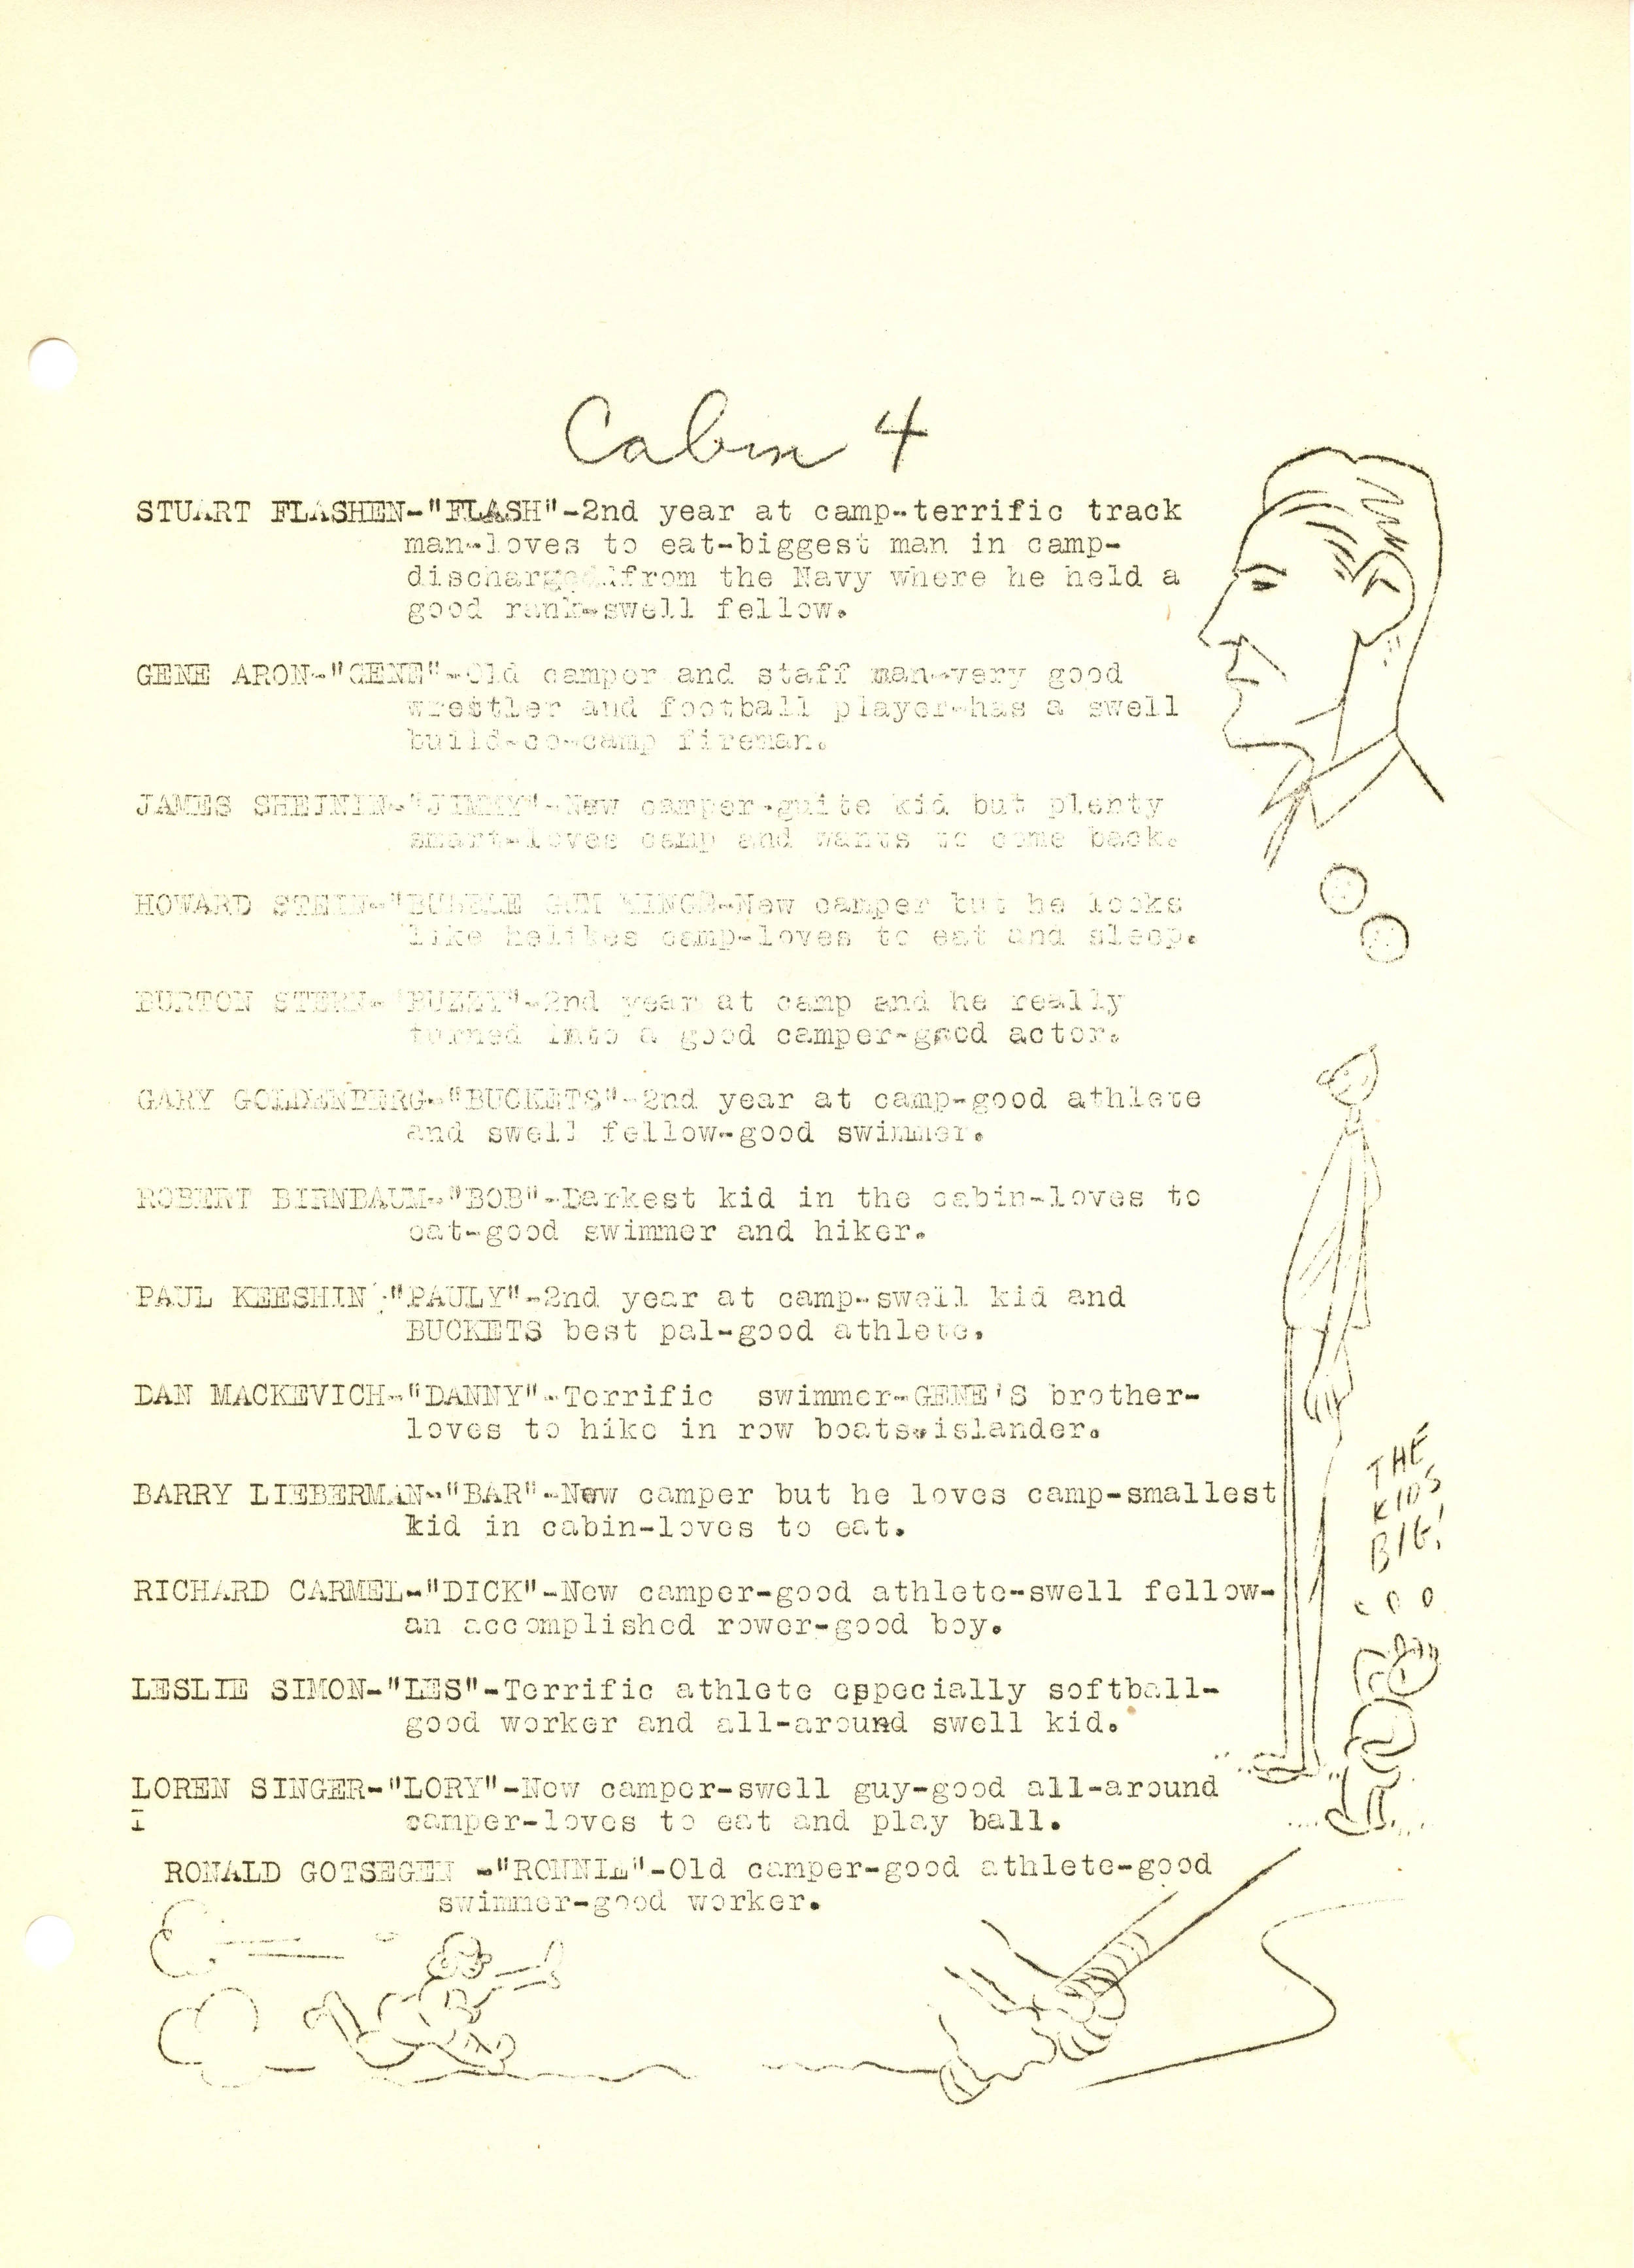 Cabin 4
STUART FLASHEN-"FLASH"-2nd year at camp-terrific track
man-loves to eat-biggest man in camp-
discharged from the Navy where he held a
good rank-swell fellow.
GENE ARON-"GENE"-Old camper and staff man-very good
wrestler and football player-has a swell
build-co-camp fireman.
JAMES SHEININ-"JIMMY"-New camper-quite kid but plenty
smart-loves camp and wants to come back.
HOWARD STEIN-"BUBBLE GUM KING"-New camper but he looks
like helikes camp-loves to eat and sleep.
BURTON STERN-"BUZZY"-2nd year at camp and he really
turned into a good camper-good actor.
GARY GOLDENBERG-"BUCKETS"-2nd year at camp-good athlete
and swell fellow-good swimmer.
ROBERT BIRNBAUM-"BOB"-Darkest kid in the cabin-loves to
eat-good swimmer and hiker.
PAUL KEESHIN-"PAULY"-2nd year at camp-swell kid and
BUCKETS best pal-good athlete.
DAN MACKEVICH-"DANNY"-Terrific swimmer-GENE'S brother-
loves to hike in row boats-islander.
BARRY LIEBERMAN-"BAR"-New camper but he loves camp-smallest
kid in cabin-loves to eat.
RICHARD CARMEL-"DICK"-New camper-good athlete-swell fellow-
an accomplished rower-good boy.
LESLIE SIMON-"LES"-Terrific athlete especially softball-
good worker and all-around swell kid.
LOREN SINGER-"LORY"-New camper-swell guy-good all-around
I camper-loves to eat and play ball.
RONALD GOTSEGEN -"RONNIE"-Old camper-good athlete-good
swimmer-good worker.
THE
KIDS
BIG!